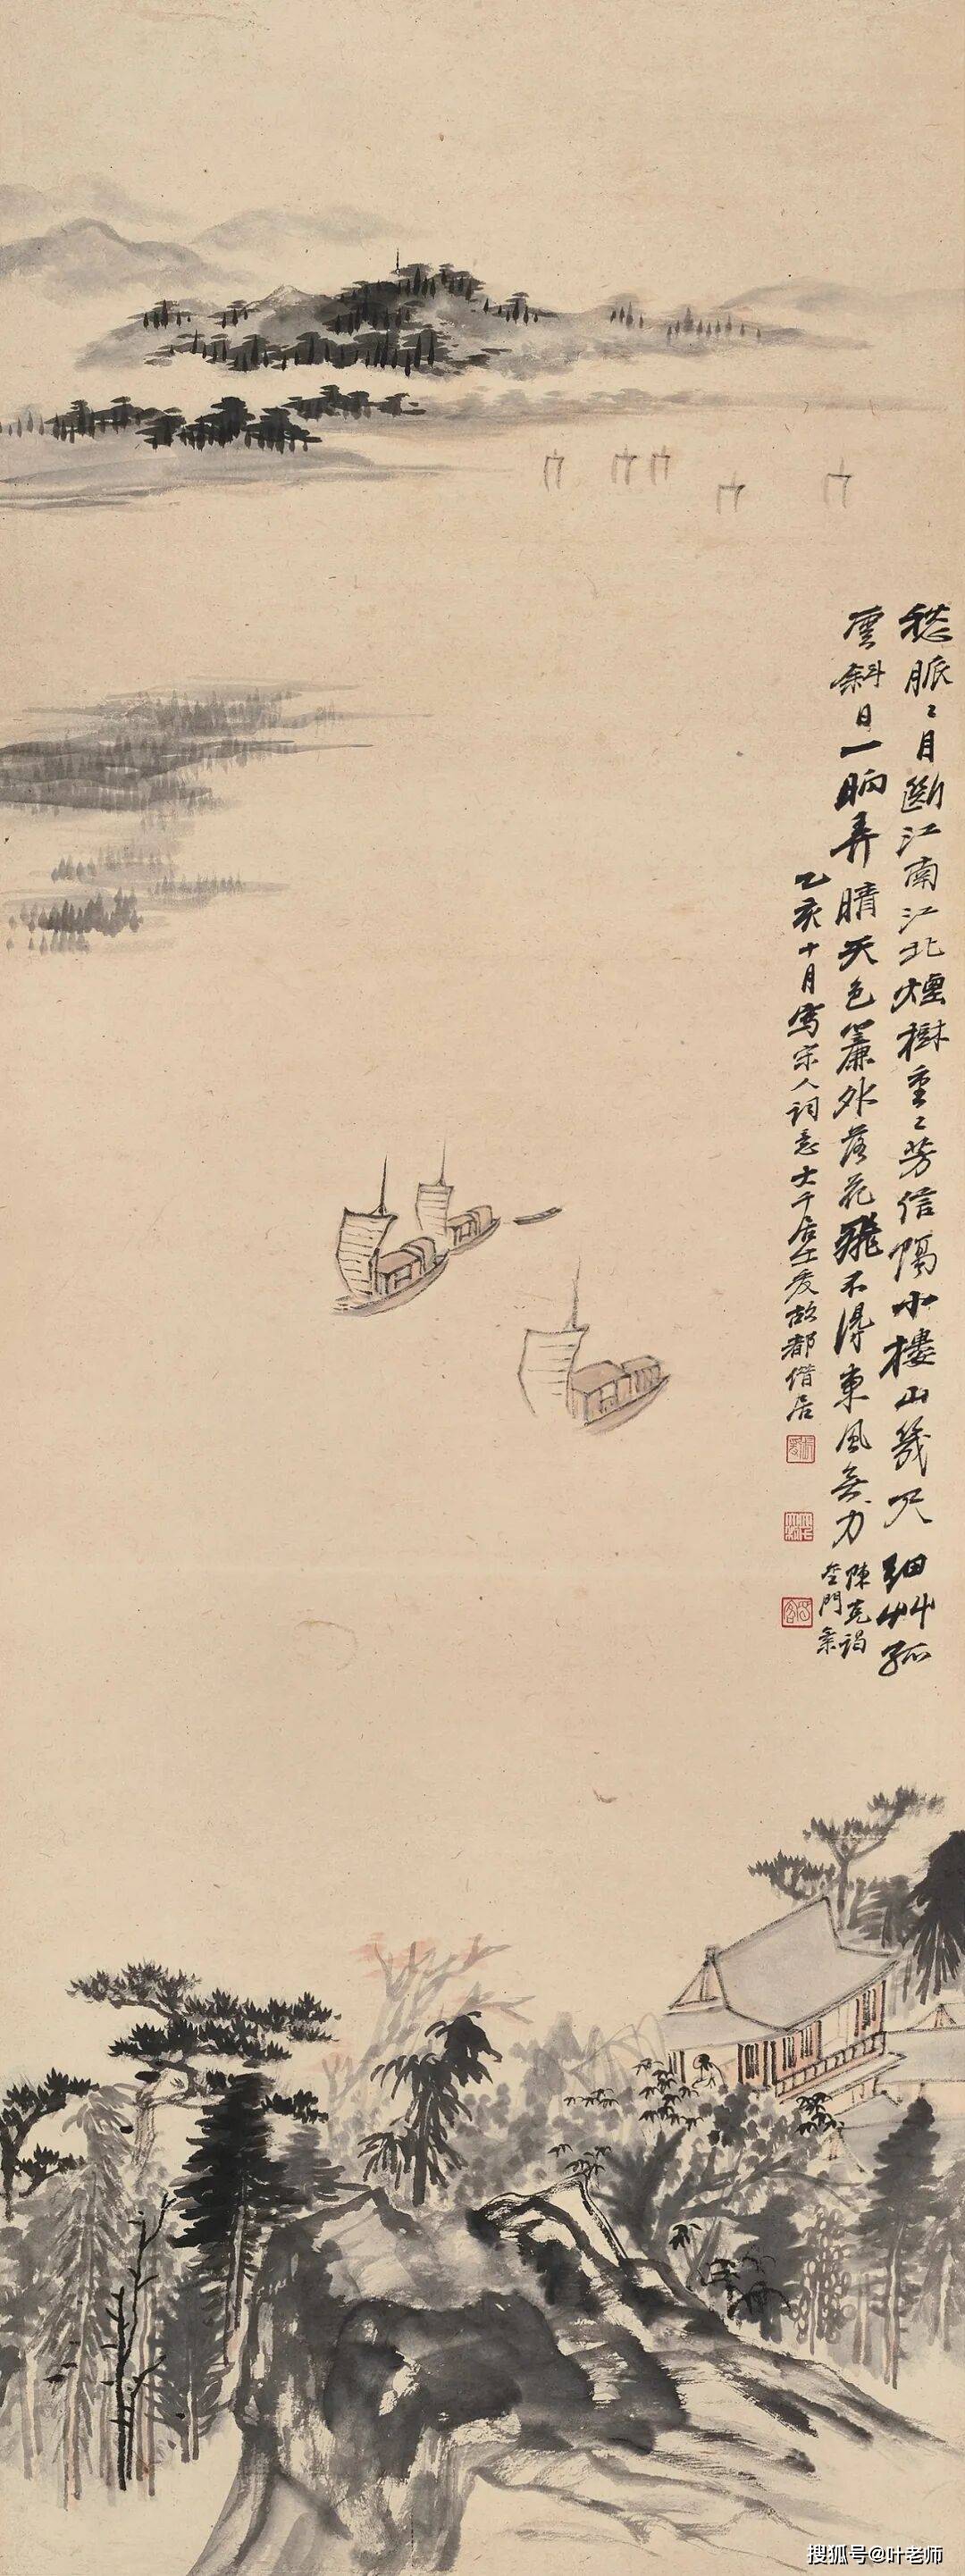 愁脈〻目斷江南江北煙樹重〻芳信隔小樓山幾尺細艸孤
雲斜日一晌弄晴天色簾外落花飛不得東風無力
陳克謁
金門
乙亥十月寫宋人詞意大千居士爰故都借居
搜狐号@叶老师